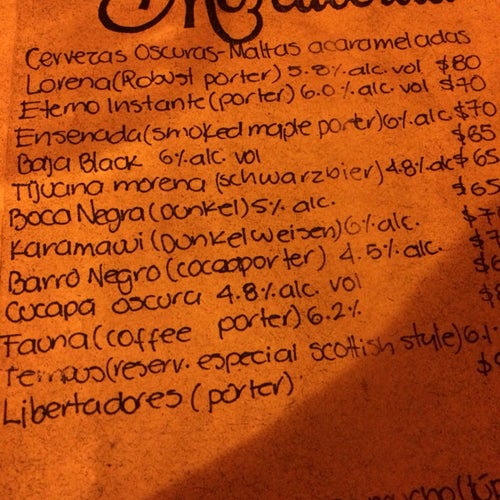 Cervezas Oscuras-Maltas acarameladas
Lorena (Robust porter) 5.8% alc. vol $80
Eterno Instante (porter) 6.0% alc. vol $70
Ensenada (smoked maple porter) 6% alc $70
Baja Black 6% alc. vol $65
Tijuana morena (schwarzbier) 4.8% alc $65
Boca Negra (Dunkel) 5% alc. $65
Karamawi (Dunkelweisen) 6% alc.
Barro Negro (cocoaporter) 4.5% alc.
Cucapa oscura 4.8% alc. vol
Fauna (coffee porter) 6.2%
Tempus (reserv. especial scottish style) 6.1
Libertadores (porter)